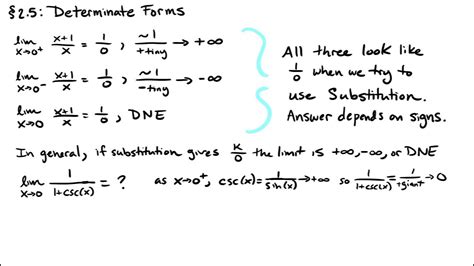 §2.5: Determinate Forms
lim x→0⁺ (x+1)/x = 1/0 , ~1/+tiny → +∞
lim x→0⁻ (x+1)/x = 1/0 , ~1/-tiny → -∞
lim x→0 (x+1)/x = 1/0 , DNE
All three look like
1/0 when we try to
use Substitution.
Answer depends on signs.
In general, if substitution gives K/0 the limit is +∞, -∞, or DNE
lim x→0 1/(1+csc(x)) = ? as x→0⁺, csc(x) = 1/sin(x) → +∞ so 1/(1+csc(x)) = 1/+giant → 0